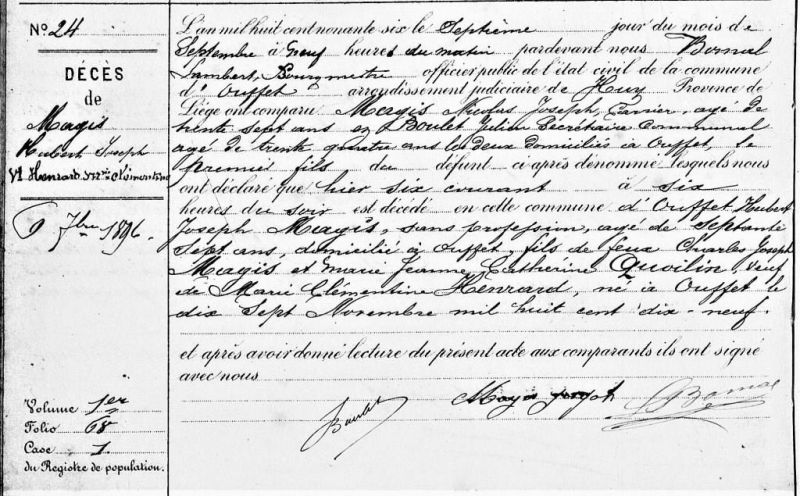 No 24
DÉCÈS
de
Magis
Hubert Joseph
Vf Henrard
9 7bre 1896.
Volume 1er
Folio 68
Case 1
du Registre de population.
L'an mil huit cent nonante six le Septième jour du mois de
Septembre à Neuf heures du matin pardevant nous Bornal
Lambert, Bourgmestre officier public de l'état civil de la commune
d'Ouffet arrondissement judiciaire de Huy Province de
Liège ont comparu Magis Nicolas Joseph, Carrier, agé de
trente sept ans et Boulet Julien Secrétaire Communal
agé de trente quatre ans les deux domiciliés à Ouffet, le
premier fils du défunt ci après dénommé lesquels nous
ont déclaré que hier six courant à six
heures du soir est décédé en cette commune d'Ouffet Hubert
Joseph Magis, sans profession, agé de Septante
Sept ans, domicilié à Ouffet, fils de feux Charles Joseph
Magis et Marie Jeanne Catherine Quoilin, Veuf
de Marie Clémentine Henrard, né à Ouffet le
dix Sept Novembre mil huit cent dix-neuf.
et après avoir donné lecture du présent acte aux comparants ils ont signé
avec nous
Magis Joseph